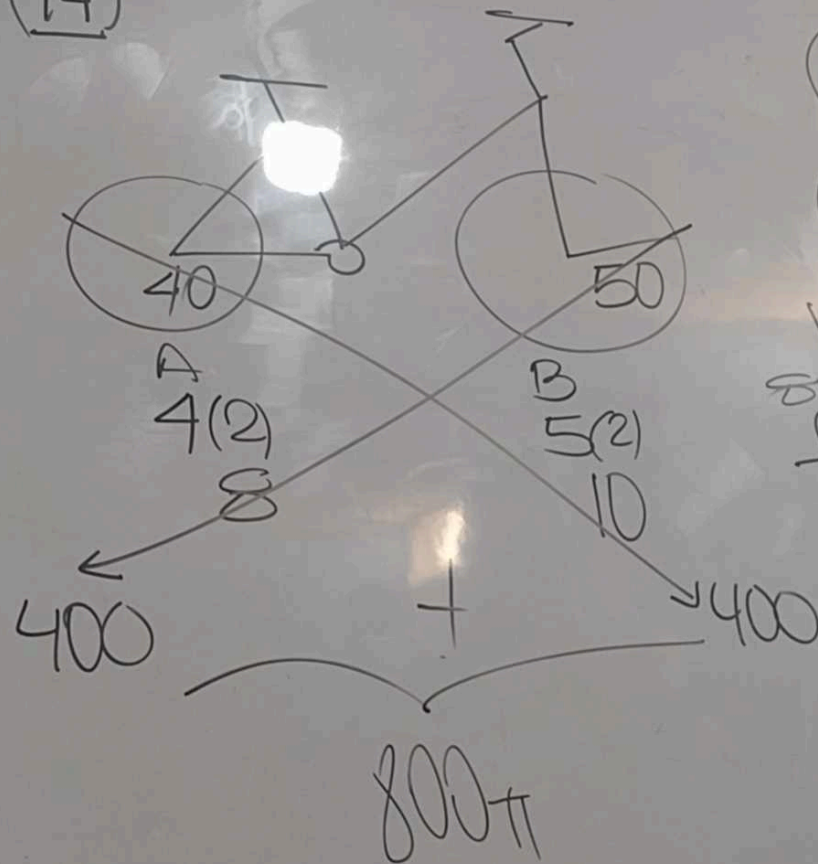 14
40 50
A B
4(2) 5(2)
8 10
400 + 400
800π